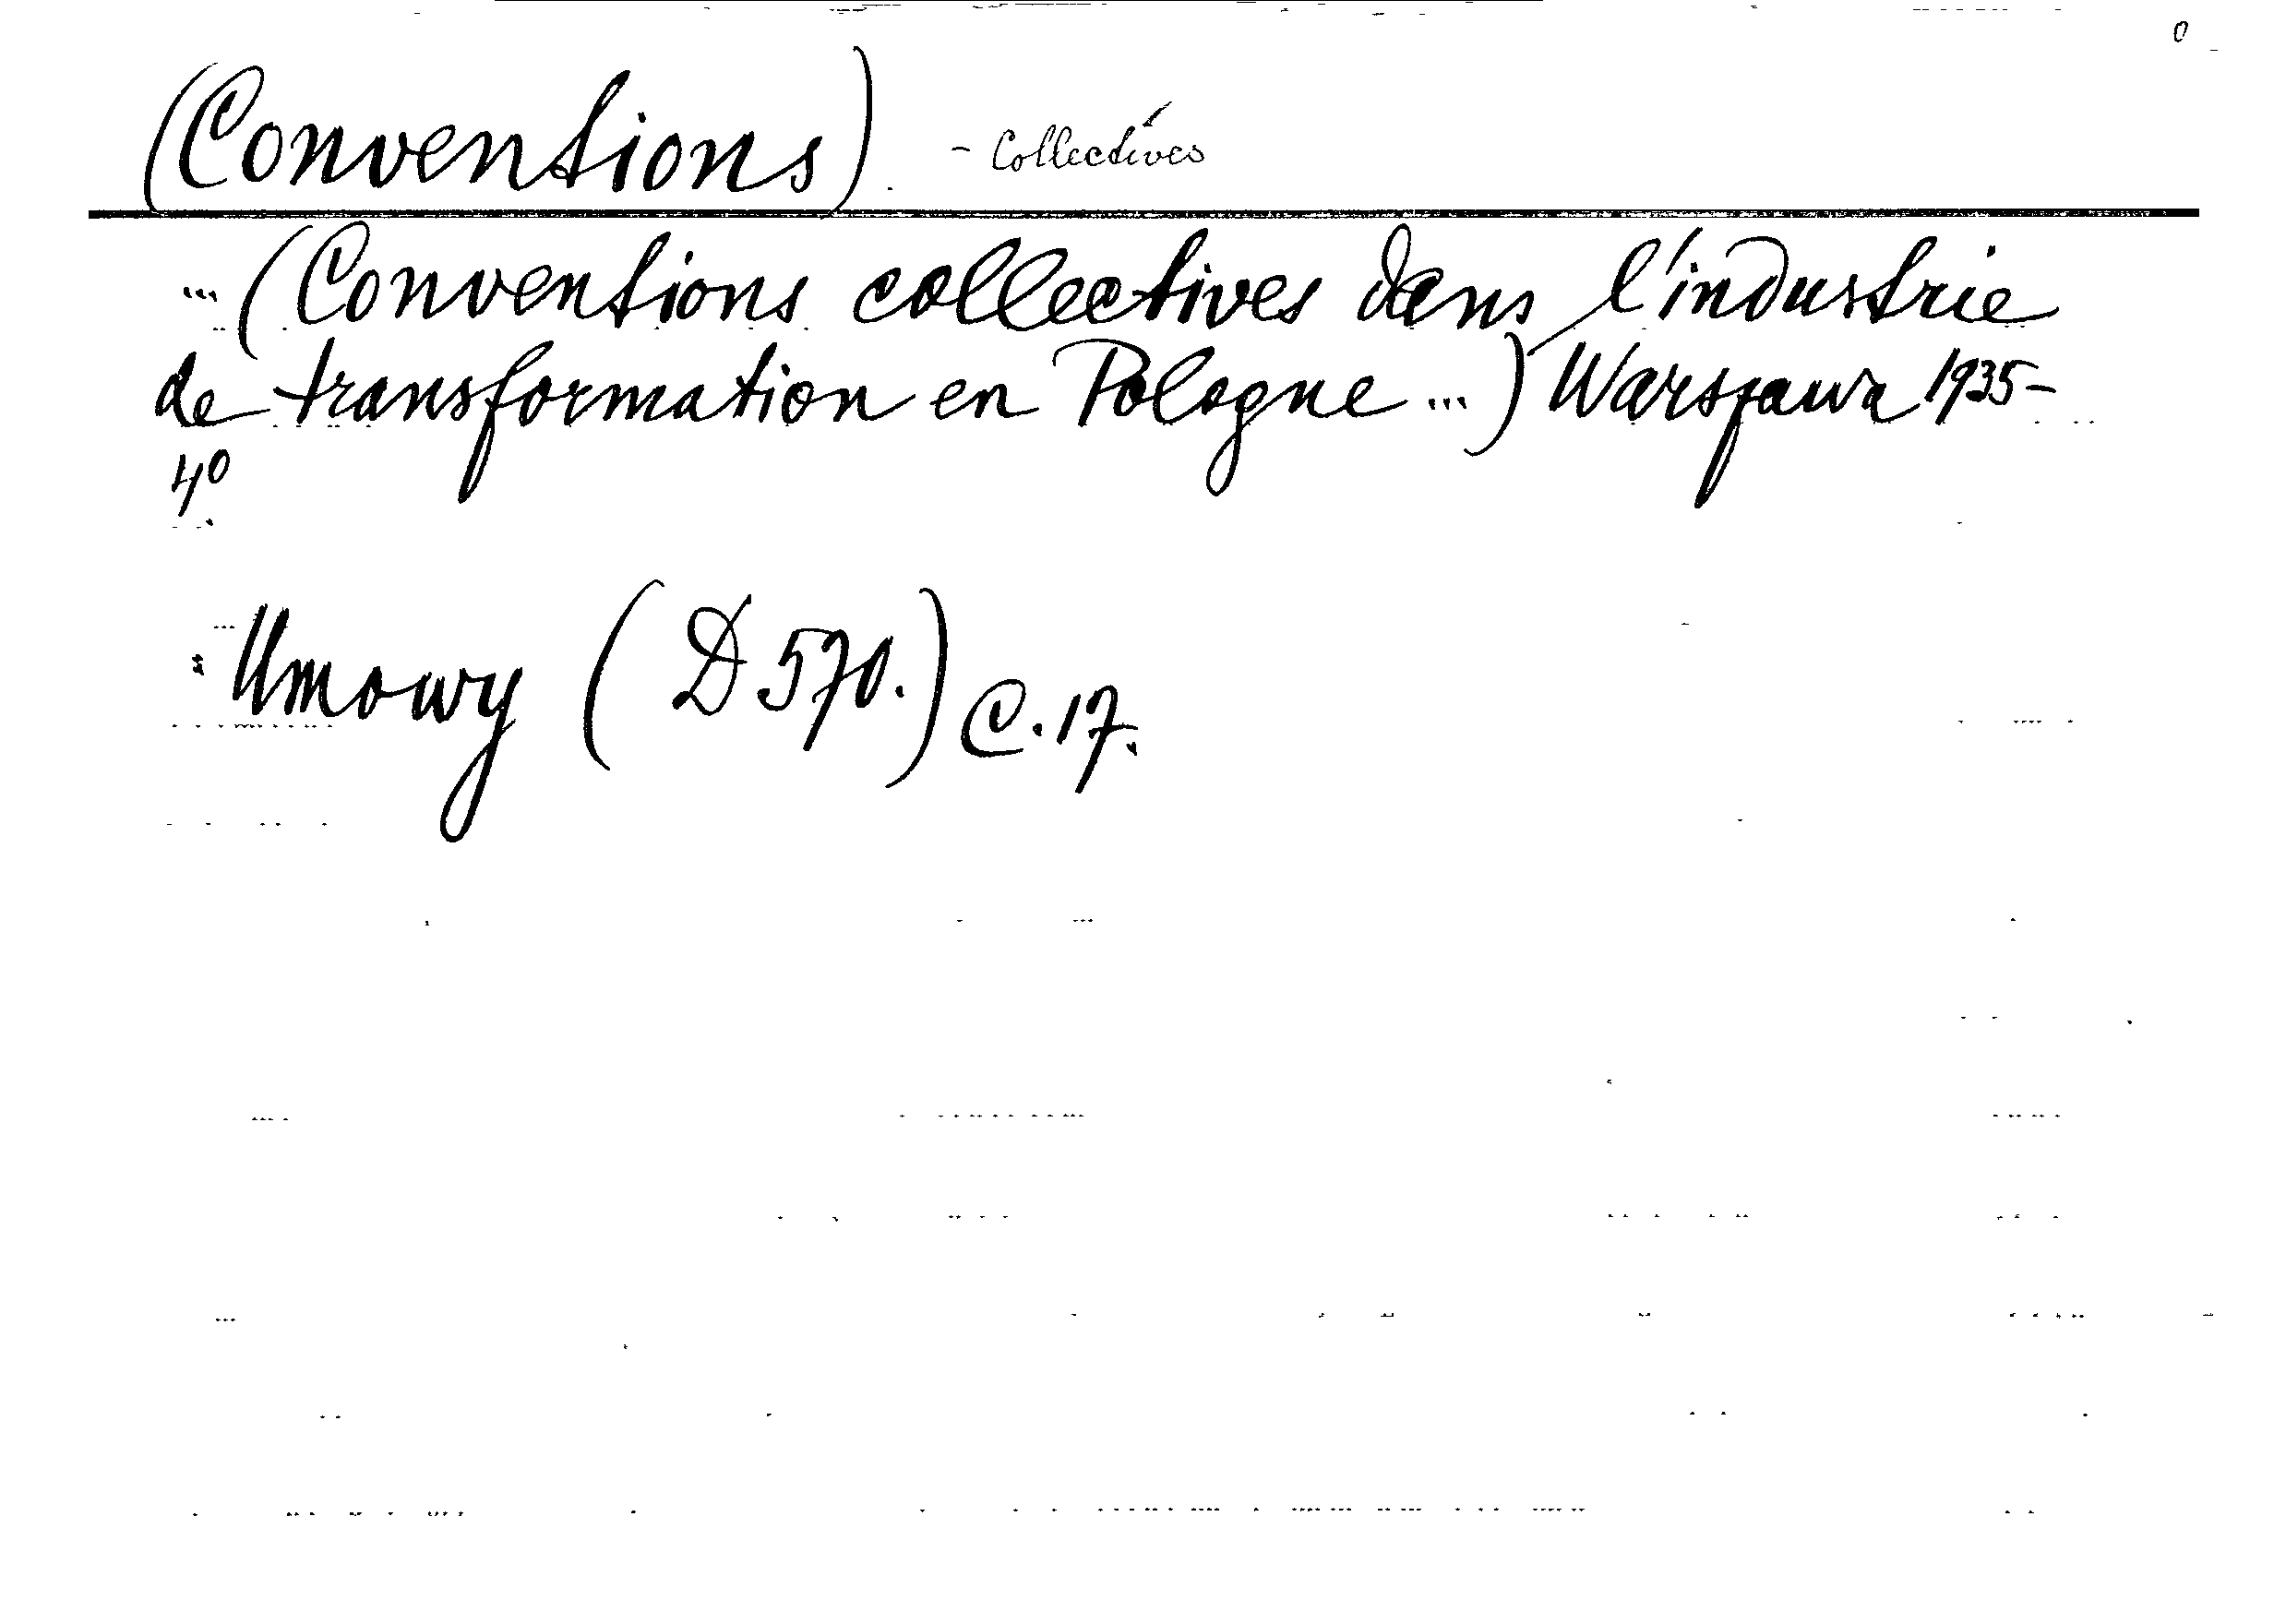 (Conventions) - Collectives
... (Conventions collectives dans l'industrie
de transformation en Pologne ...) Warszawa 1935-
4°
Umowy (D 570.) C. 17.